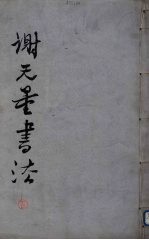 谢无量书法